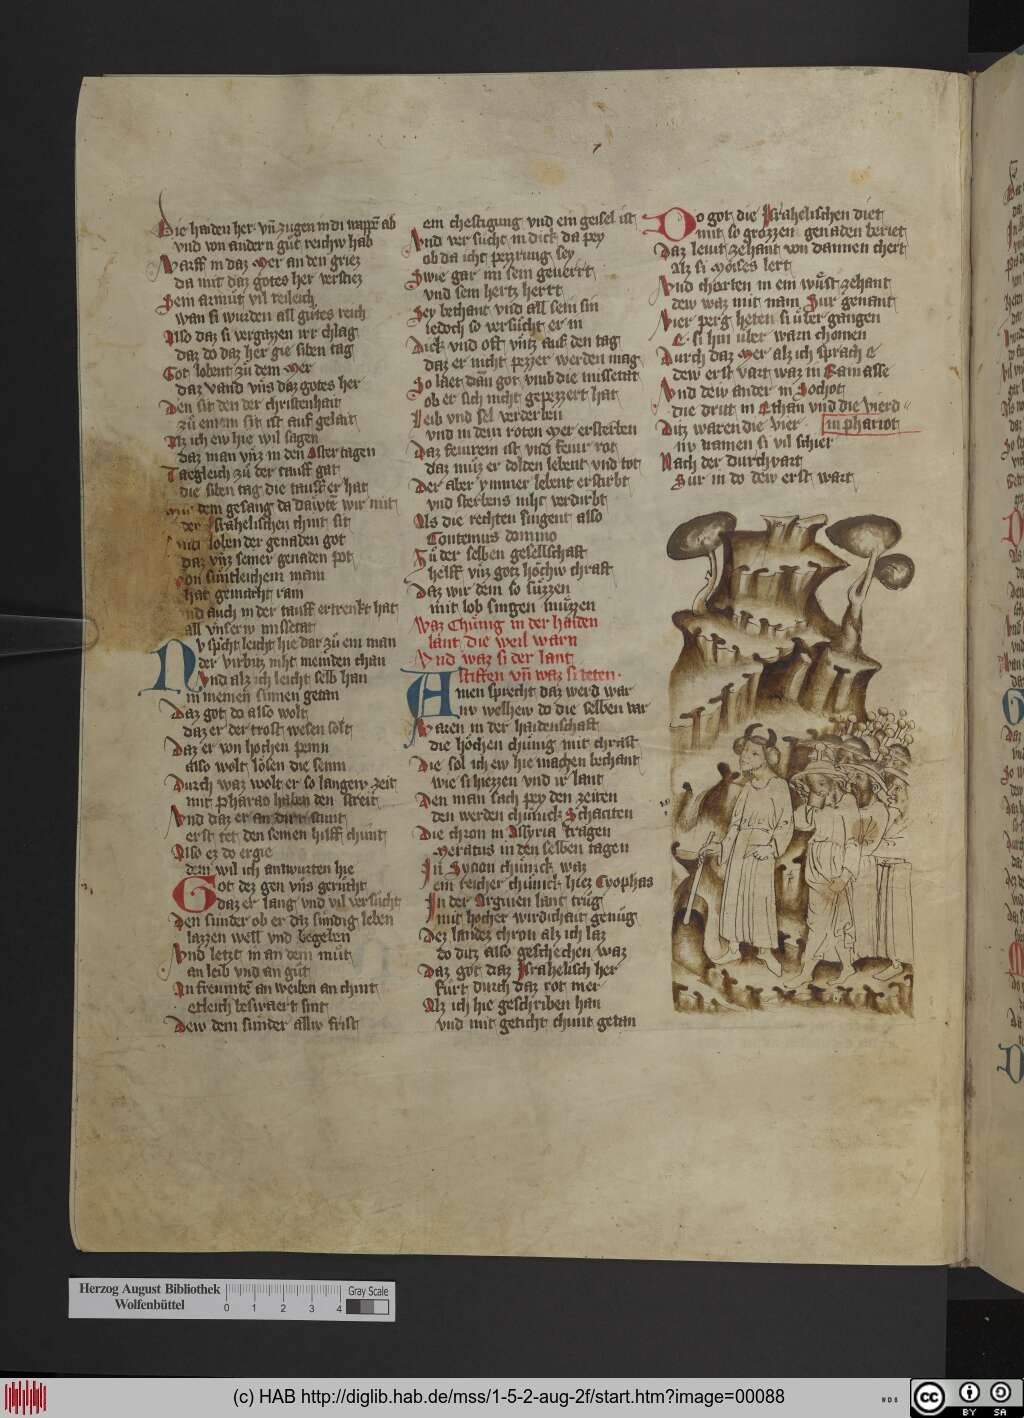 Die haiden her vn̄ zugen in di wappē ab
vnd von andern gůt reichw hab
Warff in daz Mer an den griez
da mit daz gotes her verstiez
Sein armůt vil reileich
wan si wurden all gůtes reich
Also daz si vergazzen irr chlag
daz do daz her gie siben tag
Got lobent zů dem Mer
daz vand vns daz gotes her
Den sit den der christenhait
zů einem sit ist auf gelait
Alz ich ew hie wil sagen
daz man vnz in den Oster tagen
Taegleich zů der tauff gat
die siben tag die tauff er hat
mit dem gesang da dawtē wir mit
der Israhelischen chint sit
vnd loben der genaden got
daz vnz seiner genaden pot
von suntleichem mam
hat gemacht ram
vnd auch in der tauff ertrenkt hat
all vnserw missetat
Nv spricht leicht hie dar zů ein man
der virbitz niht meinden chan
Vnd alz ich leicht selb han
in meinen sinnen getan
Daz got do also wolt
daz er der trost wesen solt
Daz er von hochen penn
also wolt lösen die senn
Durch waz wolt er so langew zeit
mit Pharao haben den streit
Vnd daz er an der stunt
erst tet den seinen hilff chunt
Also ez do ergie
dem wil ich antwurten hie
Got dez gen vns geruht
daz er lang vnd vil versucht
Den sunder ob er daz sundig leben
lazzen well vnd begeben
Vnd letzt in an dem můt
an leib vnd an gůt
An freuntē an weiben an chint
etleich beswaert sint
Dew dem sunder alliv frist
ein chestigung vnd ein geisel ist
Vnd ver sucht in dick da pey
ob da icht pezzrung sey
Swie gar im sein geuerrt
vnd sein hertz herrt
Sey bechant vnd all sein sin
iedoch so versůcht er in
Dick vnd oft vntz auf den tag
daz er nicht pezzer werden mag
So laet dan got vmb die missetat
ob er sich nicht gepezzert hat
Leib vnd sel verderben
vnd in dem roten Mer ersterben
Daz feurein ist vnd feur rot
daz můz er dolten lebent vnd tot
Der aber ymmer lebent erstirbt
vnd sterbens niht verdirbt
Als die rechten singent also
Contemus domino
Zů der selben gesellschaft
helff vnz gotz höchw chraft
Daz wir dem so sůzzen
mit lob singen můzzen
Waz Chůnig in der haiden
lant die weil warn
Vnd waz si der lant
stiften vn̄ waz si teten
Amen sprecht daz werd war
nv welhew do die selben var
Waren in der haidenschaft
die höchen chünig mit chraft
Die sol ich ew hie machen bechant
wie si hiezzen vnd ir lant
Den man sach pey den zeiten
den werden chünick Schariten
Die chron in Assyria tragen
Meratus in den selben tagen
In Sycion chünick waz
ein reicher chünick hiez Cyophas
In der Argiuen lant trůg
mit hocher wirdichait genůg
Dez landez chron alz ich laz
do ditz also geschechen waz
Daz got daz Israhelisch her
fürt durch daz rot mer
Alz ich hie geschriben han
vnd mit geticht chunt getan
Do got die Israhelischen diet
mit so grozzen genaden beriet
Daz leuut zehant von dannen chert
Alz si Moises lert
Vnd chorten in ein wůst zehant
dew waz mit nam Sur genant
Vier perg heten si über gangen
E si hin über warn chomen
Durch daz Mer alz ich sprach E
dew erst vart waz in Ramasse
Vnd dew ander in Sochot
die dritt in Ethan vnd die vierd
Ditz waren die vier in phariot
nv namen si vil schier
Nach der durchvart
Sur in do dew erst wart
Herzog August Bibliothek
Wolfenbüttel
0 1 2 3 4
Gray Scale
(c) HAB http://diglib.hab.de/mss/1-5-2-aug-2f/start.htm?image=00088
WDB
cc
BY SA